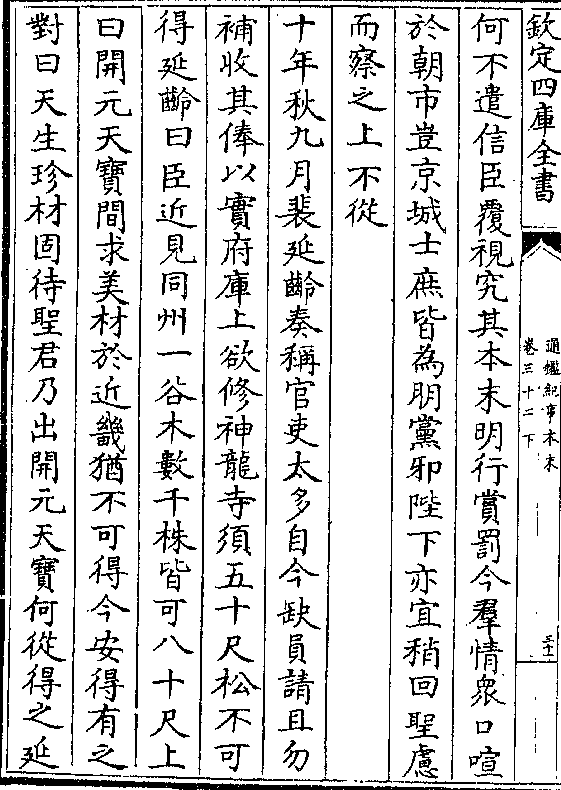 欽定四庫全書
通鑑紀事本末
卷三十二下
三十
何不遣信臣覆視究其本末明行賞罰今羣情衆口喧
於朝市豈京城士庶皆為朋黨邪陛下亦宜稍回聖慮
而察之上不從
十年秋九月裴延齡奏稱官吏太多自今缺員請且勿
補收其俸以實府庫上欲修神龍寺須五十尺松不可
得延齡曰臣近見同州一谷木數千株皆可八十尺上
曰開元天寶間求美材於近畿猶不可得今安得有之
對曰天生珍材固待聖君乃出開元天寶何從得之延